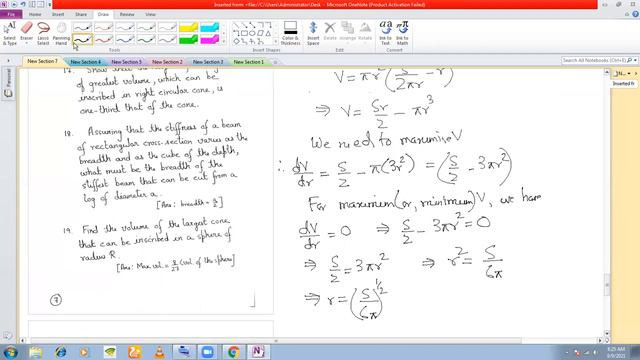 Inserted from <file://C:\Users\Administrator\Desk... - Microsoft OneNote (Product Activation Failed)
File Home Insert Share Draw Review View
Select & Type
Eraser
Lasso Select
Panning Hand
Tools
Insert Shapes
Color & Thickness
Edit
Ink to Text
Ink to Math
Convert
New Section 7 New Section 4 New Section 5 New Section 2 New Section 3 New Section 1
of greatest volume, which can be
inscribed in right circular cone, is
one-third that of the cone.
18. Assuming that the stiffness of a beam
of rectangular cross-section varies as the
breadth and as the cube of the depth,
what must be the breadth of the
stiffest beam that can be cut from a
log of diameter a.
[Ans: breadth = a/2]
19. Find the volume of the largest cone
that can be inscribed in a sphere of
radius R.
[Ans: Max vol. = 8/27 (vol. of the sphere)]
7
V = πr² (S/2πr - r)
⇒ V = Sr/2 - πr³
We need to maximise V
∴ dV/dr = S/2 - π(3r²) = (S/2 - 3πr²)
For maximum (or, minimum) V, we have
dV/dr = 0 ⇒ S/2 - 3πr² = 0
⇒ S/2 = 3πr² ⇒ r² = S/6π
⇒ r = (S/6π)^1/2
8:25 AM
9/9/2021